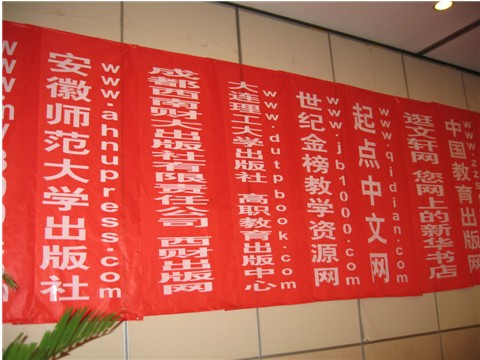 安徽师范大学出版社
www.ahnupress.com
成都西南财大出版社有限责任公司 西财出版网
大连理工大学出版社 高职教育出版中心
www.dutpbook.com
世纪金榜教学资源网
www.jb1000.com
起点中文网
www.qidian.com
逛文轩网 您网上的新华书店
中国教育出版网